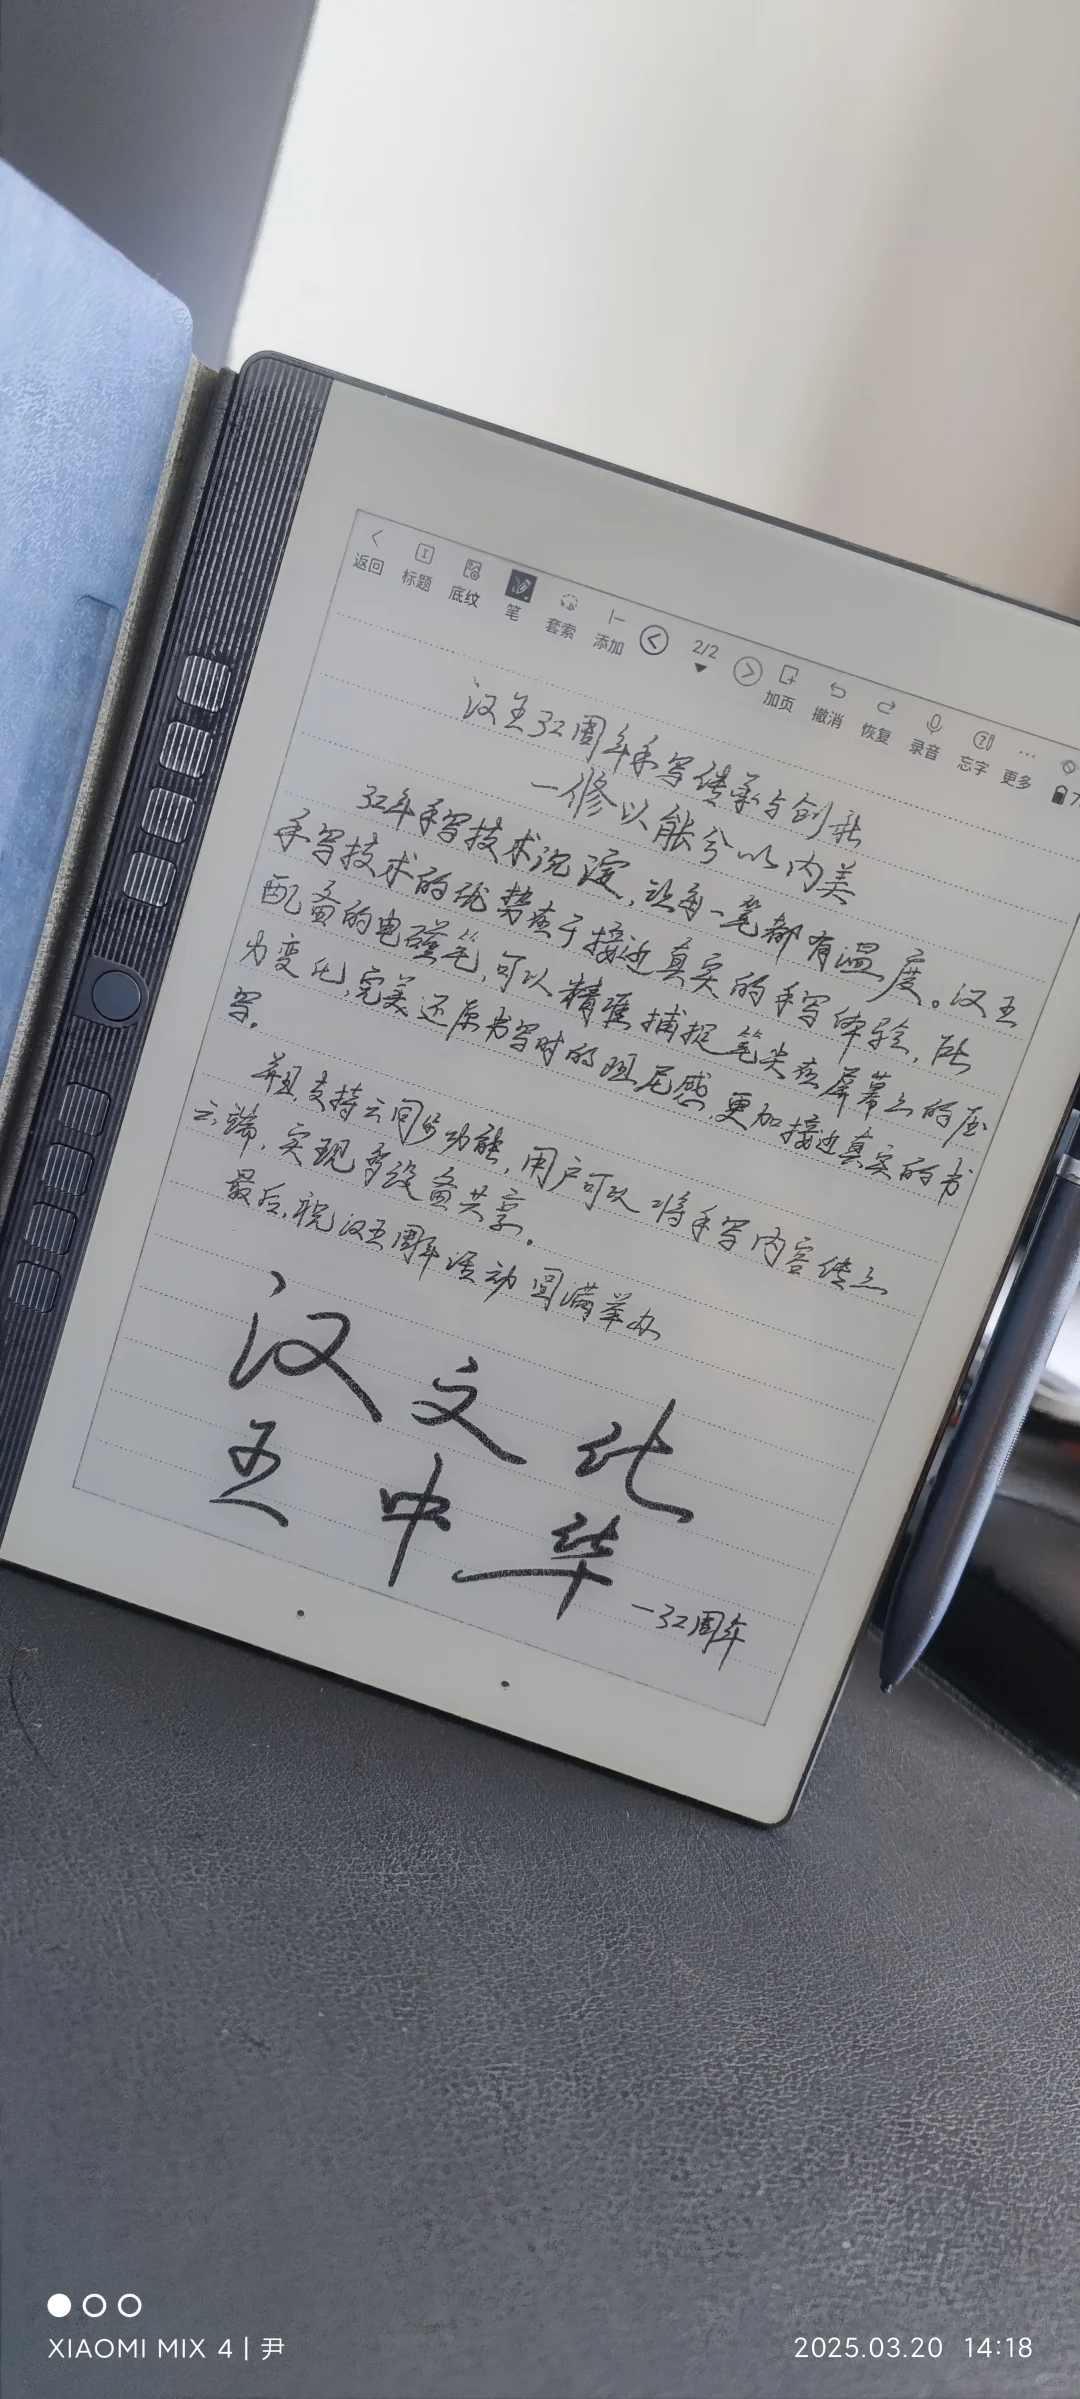 返回 标题 底纹 笔 套索 添加 2/2 加页 撤消 恢复 录音 忘字 更多
汉王32周年手写传承与创新
一修以能兮以内美
32年手写技术沉淀,让每一笔都有温度。汉王
手写技术的优势在于接近真实的手写体验,所
配备的电磁笔,可以精准捕捉笔尖在屏幕上的压
力变化,完美还原书写时的阻尼感,更加接近真实的书
写。
并且支持云同步功能,用户可以将手写内容传上
云端,实现多设备共享。
最后,祝汉王周年活动圆满举办
汉 文 化
王 中 华
一32周年
XIAOMI MIX 4 | 尹
2025.03.20 14:18